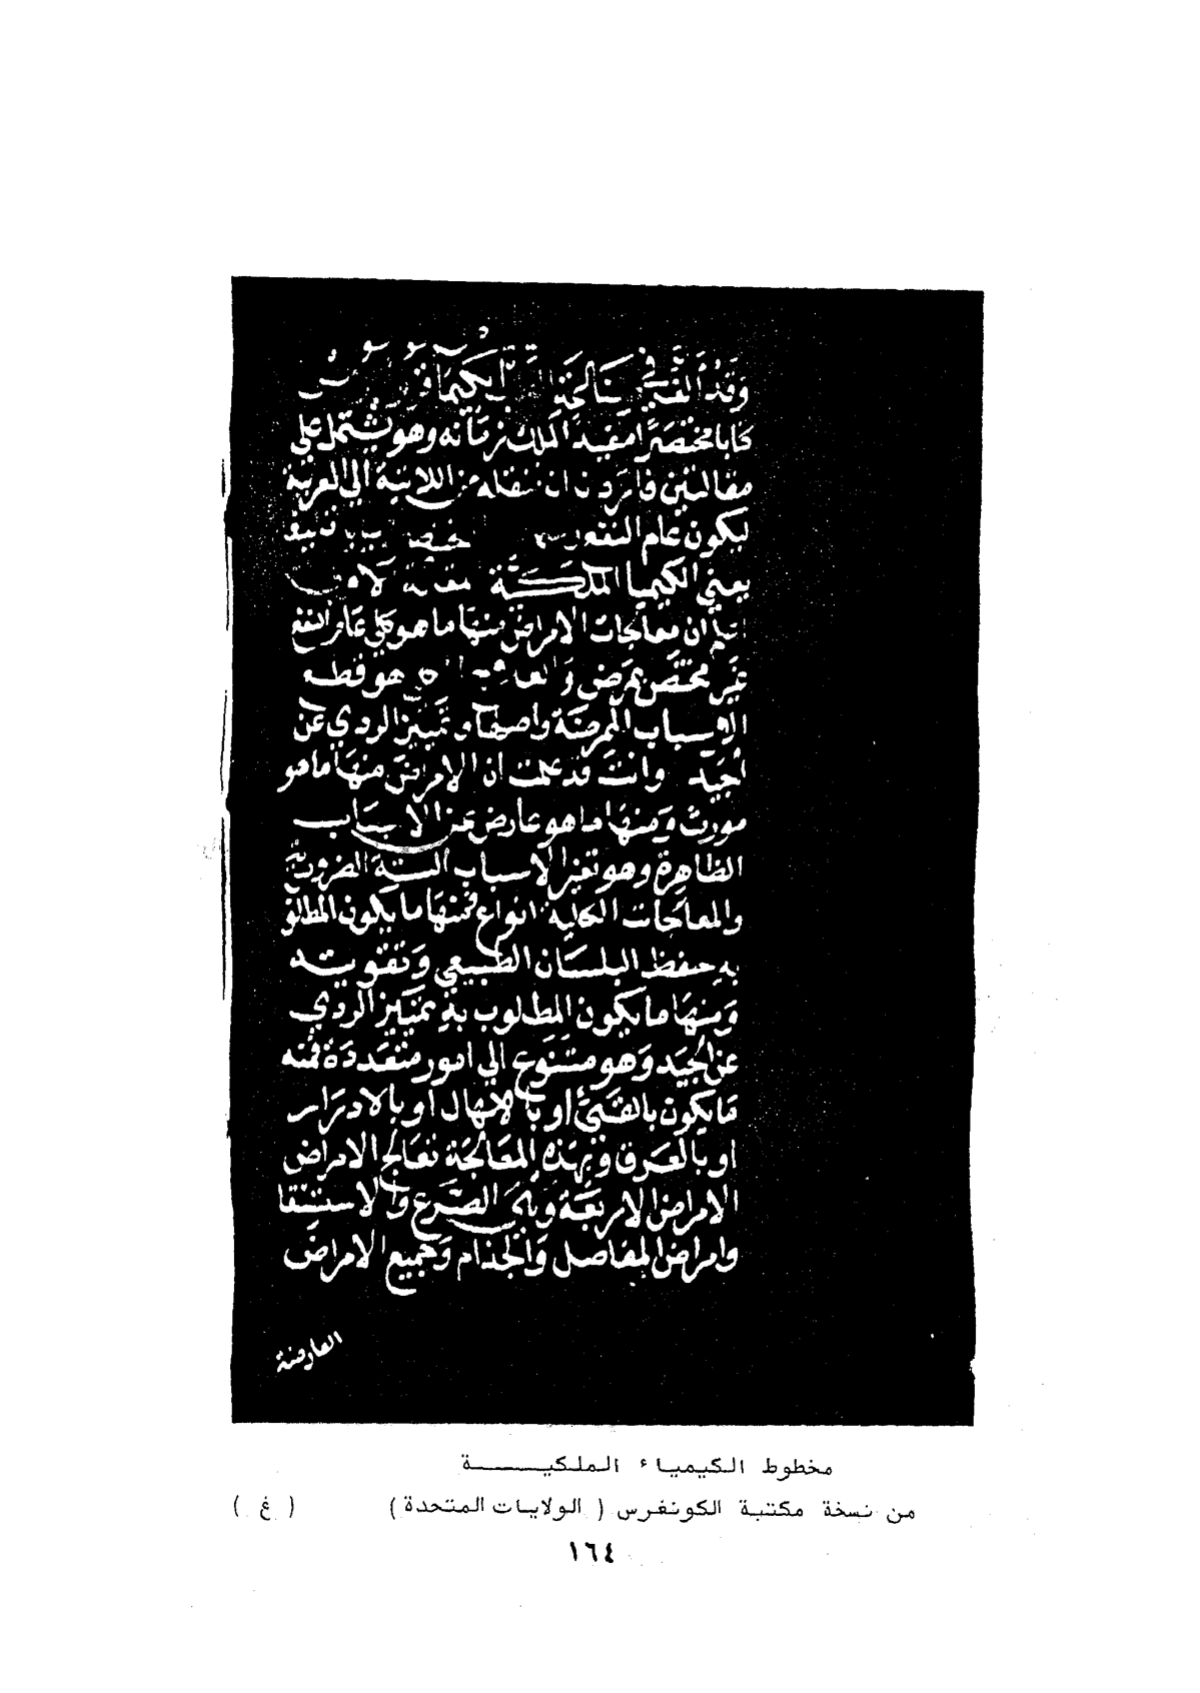 وَقَدْ الَّفَ في
كتابا مختصَرًا مفيدا لملك زمَانه وهَو يشتمل على
مقالتين فاردت ان ننقله من اللاتينية الي العربية
ليكون عام النفع
يعني الكيميا الملكَيَّة مقدمة
ان معالجات الامراض منهَا ما هو كلي عَام النفع
غَير مختصّ بمَرَض وَ هو قطع
الاسباب الممرضَة واصلها وتمييز الردي عَن
الجَيّد وانت قد علمت ان الامراض منهَا ما هو
مورث وَمنهَا ما هو عارض عن الاسبَاب
الظاهِرة وهو تغير الاسباب الستة الضرورية
والمعالجَات الكلية انواع فمنهَا ما يكون المطلوب
به حفظ البلسَان الطبيعي وَتقويته
وَمنهَا ما يكون المطلوب بهِ تمَييز الردي
عن الجَيد وَهو متنَوع الي امور متعَددَة فمنه
مَا يكون بالقَئ او بالاسهال او بالادرَار
او بالعَرق وَبهَذه المعَالجَة تعَالج الامراض
الامراض الاربَعَة وَهَى الصَّرع وَالاستسقا
وامراض المفاصل وَالجذام وَجميع الامراض
العارضة
مخطوط الكيمياء الملكيـــــة
من نسخة مكتبة الكونغرس ( الولايات المتحدة ) ( غ )
١٦٤